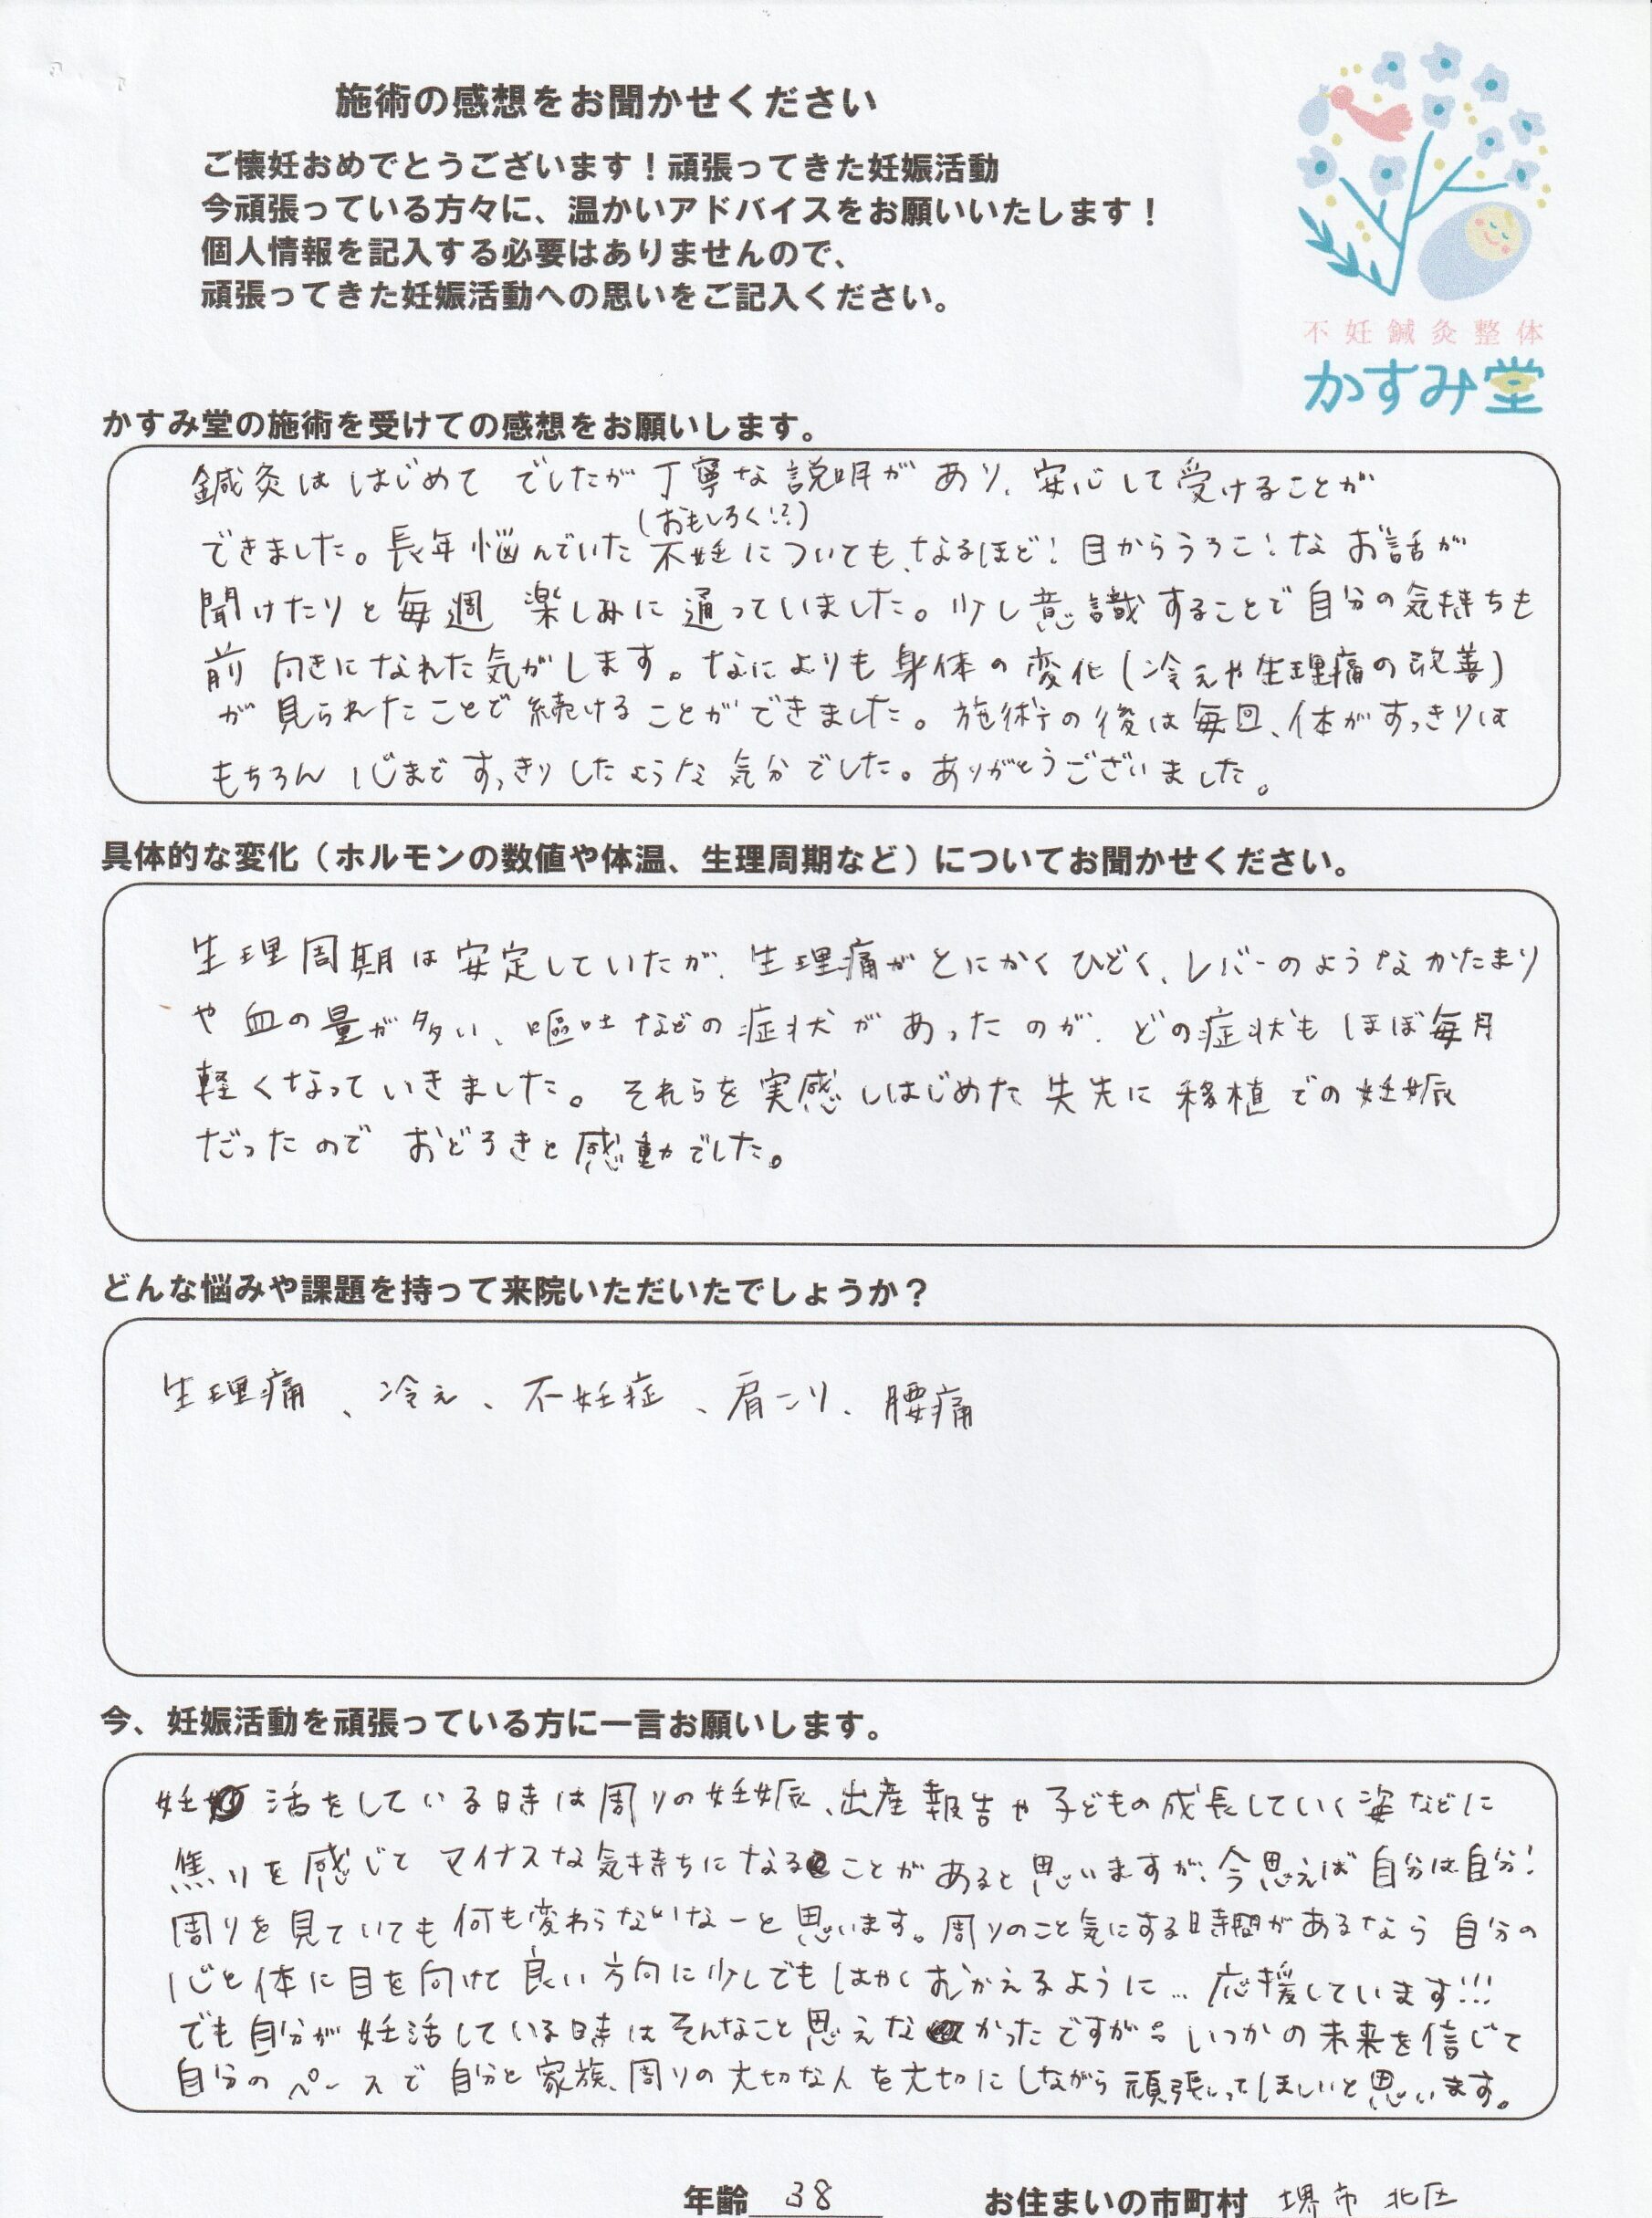 施術の感想をお聞かせください
ご懐妊おめでとうございます！頑張ってきた妊娠活動
今頑張っている方々に、温かいアドバイスをお願いいたします！
個人情報を記入する必要はありませんので、
頑張ってきた妊娠活動への思いをご記入ください。
不妊鍼灸整体
かすみ堂
かすみ堂の施術を受けての感想をお願いします。
鍼灸ははじめてでしたが丁寧な説明があり、安心して受けることが
(おもしろく!?)
できました。長年悩んでいた不妊についても、なるほど！目からうろこ！なお話が
聞けたりと毎週楽しみに通っていました。少し意識することで自分の気持ちも
前向きになれた気がします。なによりも身体の変化(冷えや生理痛の改善)
が見られたことで続けることができました。施術の後は毎回、体がすっきりは
もちろん心まですっきりしたような気分でした。ありがとうございました。
具体的な変化（ホルモンの数値や体温、生理周期など）についてお聞かせください。
生理周期は安定していたが、生理痛がとにかくひどく、レバーのようなかたまり
や血の量が多い、嘔吐などの症状があったのが、どの症状もほぼ毎月
軽くなっていきました。それらを実感しはじめた矢先に移植での妊娠
だったのでおどろきと感動でした。
どんな悩みや課題を持って来院いただいたでしょうか？
生理痛、冷え、不妊症、肩こり、腰痛
今、妊娠活動を頑張っている方に一言お願いします。
妊活をしている時は周りの妊娠、出産報告や子どもの成長していく姿などに
焦りを感じてマイナスな気持ちになることがあると思いますが、今思えば自分は自分！
周りを見ていても何も変わらないなーと思います。周りのこと気にする時間があるなら自分の
心と体に目を向けて良い方向に少しでもはやくむかえるように…応援しています!!!
でも自分が妊活している時はそんなこと思えなかったですが。。いつかの未来を信じて
自分のペースで自分と家族、周りの大切な人を大切にしながら頑張ってほしいと思います。
年齢 38 お住まいの市町村 堺市 北区